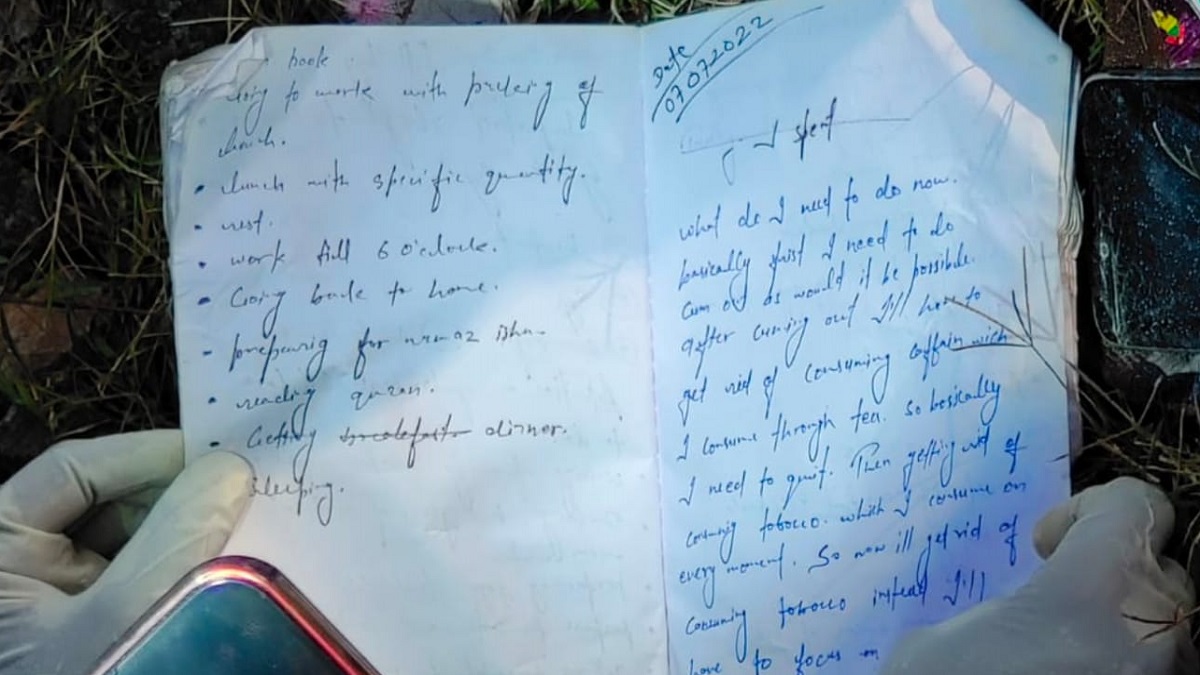 book
Going to work with packing of
lunch.
• lunch with specific quantity.
• rest.
• work till 6 o'clock.
• Going back to home.
• preparig for namaz isha.
• reading quran.
• Getting breakefast dinner.
Sleeping.
Date
07072022
I spent
what do I need to do now.
basically fuist I need to do
Cum out as would it be possible.
after cuming out I'll have to
get rid of consuming caffain wich
I consume through tea. so basically
I need to quit. Then getting rid of
consuming tobacco. which I consume on
every moment. So now ill get rid of
Consuming tobacco instead I'll
have to focus on